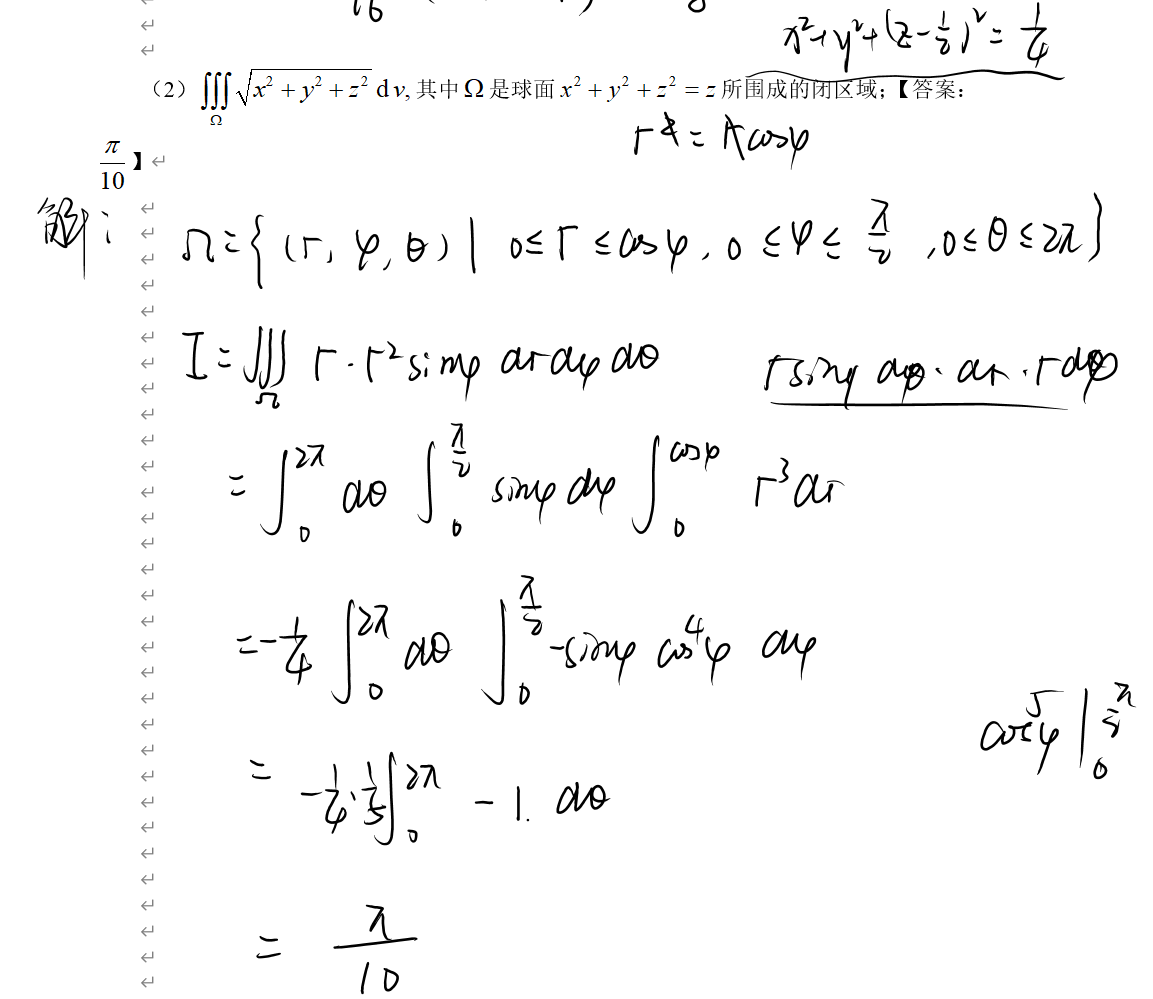 x²+y²+(z-1/2)²=1/4
（2）∭_Ω √(x²+y²+z²) dv, 其中 Ω 是球面 x²+y²+z²=z 所围成的闭区域；【答案：
π/10】
解：
Ω={(r,φ,θ)| 0≤r≤cosφ, 0≤φ≤π/2, 0≤θ≤2π}
I=∭_Ω r·r²sinφ dr dφ dθ
=∫₀^{2π} dθ ∫₀^{π/2} sinφ dφ ∫₀^{cosφ} r³ dr
=-1/4 ∫₀^{2π} dθ ∫₀^{π/2} -sinφ cos⁴φ dφ
cos⁵φ |₀^{π/2}
= -1/4·1/5 ∫₀^{2π} -1. dθ
= π/10